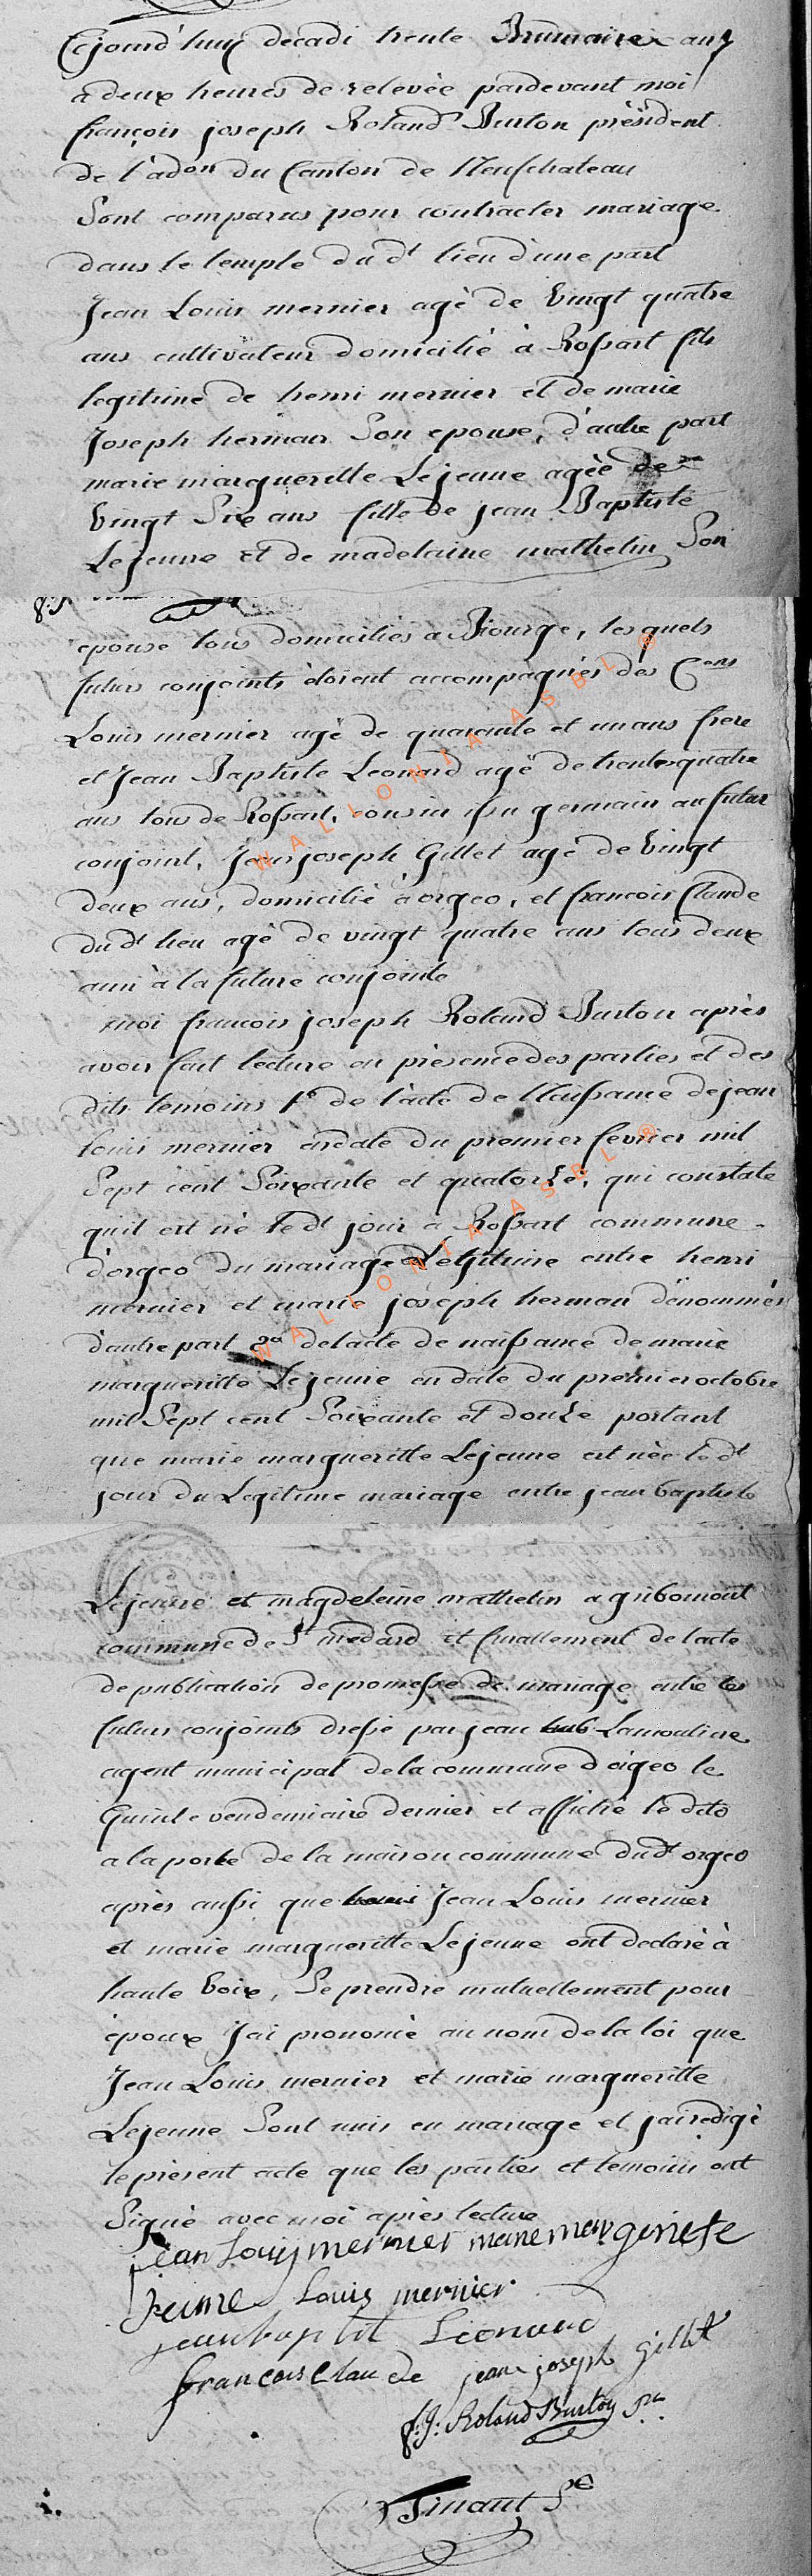 Cejourd'huy decadi trente Brumaire an 7
a deux heures de relevée pardevant moi
françois joseph Roland Burton président
de l'adon du Canton de Neufchateau
Sont comparus pour contracter mariage
dans le temple du dt lieu d'une part
Jean Louis mernier agé de Vingt quatre
ans cultivateur domicilié à Rossart fils
legitime de henri mernier et de marie
Joseph herman Son epouse, d'autre part
marie marguerille Lejeune agée de
Vingt Six ans fille de jean Baptiste
Lejeune et de madelaine mathelin Son
epouse tous domiciliés a Biourge, lesquels
futurs conjoints étoient accompagnés des Cens
Louis mernier agé de quarante et un ans frere
et Jean Baptiste Leonard agé de trente quatre
ans tous de Rossart, cousin issu germain au futur
conjoint, Jean joseph Gillet agé de Vingt
deux ans, domicilié à orgeo, et francois Claude
du dt lieu agé de vingt quatre ans tous deux
ami à la future conjointe
moi francois joseph Roland Burton après
avoir fait lecture en présence des parties et des
dits temoins 1o de l'acte de Naissance de jean
louis mernier en date du premier fevrier mil
Sept cent Soixante et quatorze, qui constate
qu'il est né le dt jour a Rossart commune
d'orgeo du mariage Legitime entre henri
mernier et marie joseph herman dénommés
d'autre part 2o de l'acte de naissance de marie
margueritte Lejeune en date du premier octobre
mil Sept cent Soixante et douze portant
que marie margueritte Lejeune est née le dt
jour du Legitime mariage entre jean baptiste
Lejeune et magdeleine mathelin a gribomont
commune de St medard et finallement de l'acte
de publication de promesse de mariage entre les
futurs conjoints dressé par jean Lamouline
agent municipal de la commune d'orgeo le
Quinze vendemiaire dernier et affiché le dito
a la porte de la maison commune du dt orgeo
après aussi que Jean Louis mernier
et marie margueritte Lejeune ont declaré à
haute Voix, Se prendre mutuellement pour
époux J'ai prononcé au nom de la loi que
Jean Louis mernier et marie margueritte
Lejeune Sont unis en mariage et j'ai redigé
le présent acte que les parties et temoins ont
Signé avec moi après lecture
jean Louis mernier marie margerite
Jeune Louis mernier
jean baptist Leonard
francois Claude jean joseph Gillet
f: J: Roland Burton Pr
Tinant Se
WALLONIA ASBL ®
WALLONIA ASBL ®